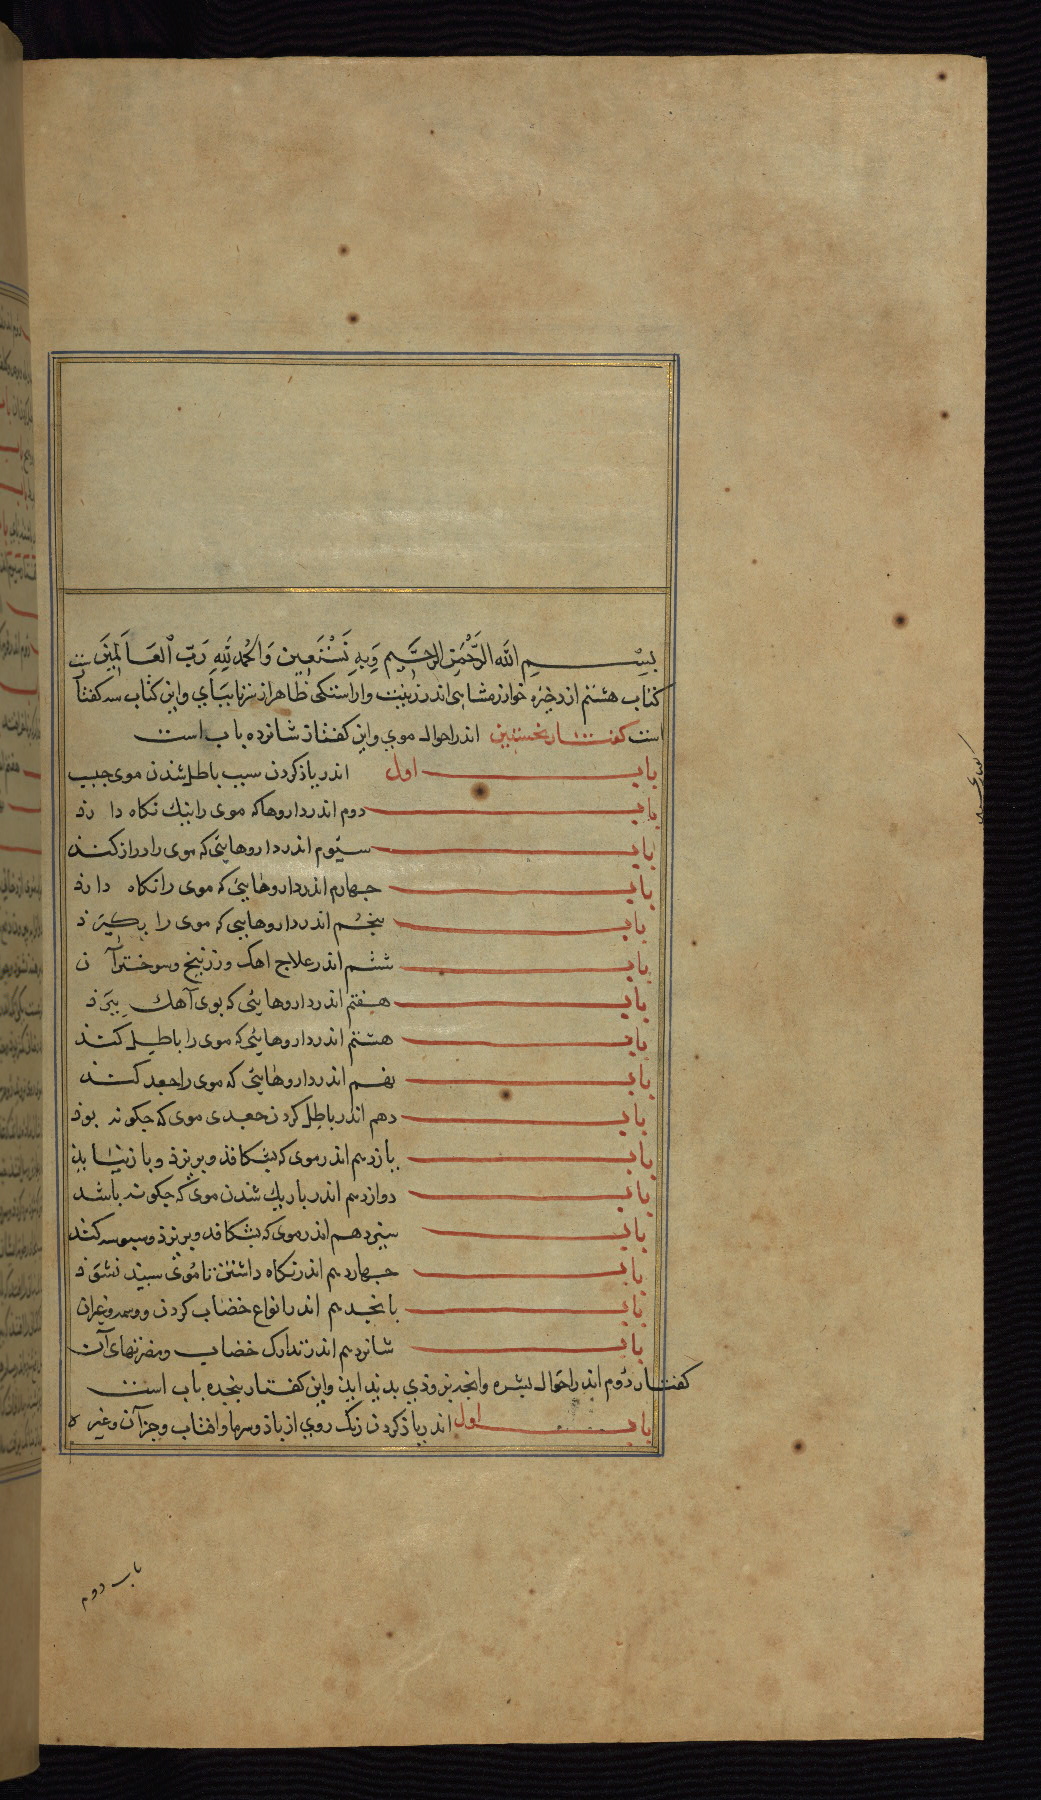 بسم الله الرحمن الرحيم وبه نستعين والحمد لله رب العالمين
كتاب هشتم از ذخيره خوارزمشاهى اندر زينت واراستكى ظاهر از سر تا بپاى واين كتاب سه كفتار
است كفتار نخستين اندر احوال موي واين كفتار شانزده باب است
باب اول اندر ياذ كردن سبب باطل شدن موى
باب دوم اندر داروها كه موى را نيك نكاه دارذ
باب سيوم اندر داروهايى كه موى را دراز كند
باب جهارم اندر داروهايى كه موى را نكاه دارذ
باب بنجم اندر داروهايى كه موى را
باب ششم اندر علاج اهك و زرنيخ وسوختن آن
باب هفتم اندر داروهايى كه بوى آهك ببرذ
باب هشتم اندر داروهايى كه موى را باطل كند
باب نهم اندر داروهايى كه موى را جعد كند
باب دهم اندر باطل كردن جعدى موى كه جكونه بوذ
باب يازدهم اندر موى كه بشكافذ و بريزذ و باز
باب دوازدهم اندر باريك شدن موى كه جكونه باشد
باب سيزدهم اندر موى كه بشكافد و بريزذ و سبوسه كند
باب جهاردهم اندر نكاه داشتن تا موى سبيد نشوذ
باب بانجدهم اندر انواع خضاب كردن و وسمه وغيران
باب شانزدهم اندر تدارك خضاب ومضرتهاى آن
كفتار دوم اندر احوال بشره وانجه بروذي بديد ايذ واين كفتار بنجده باب است
باب اول اندر ياذ كردن رنك روي از باذ وسرما وافتاب وجز آن وغيره
باب دوم